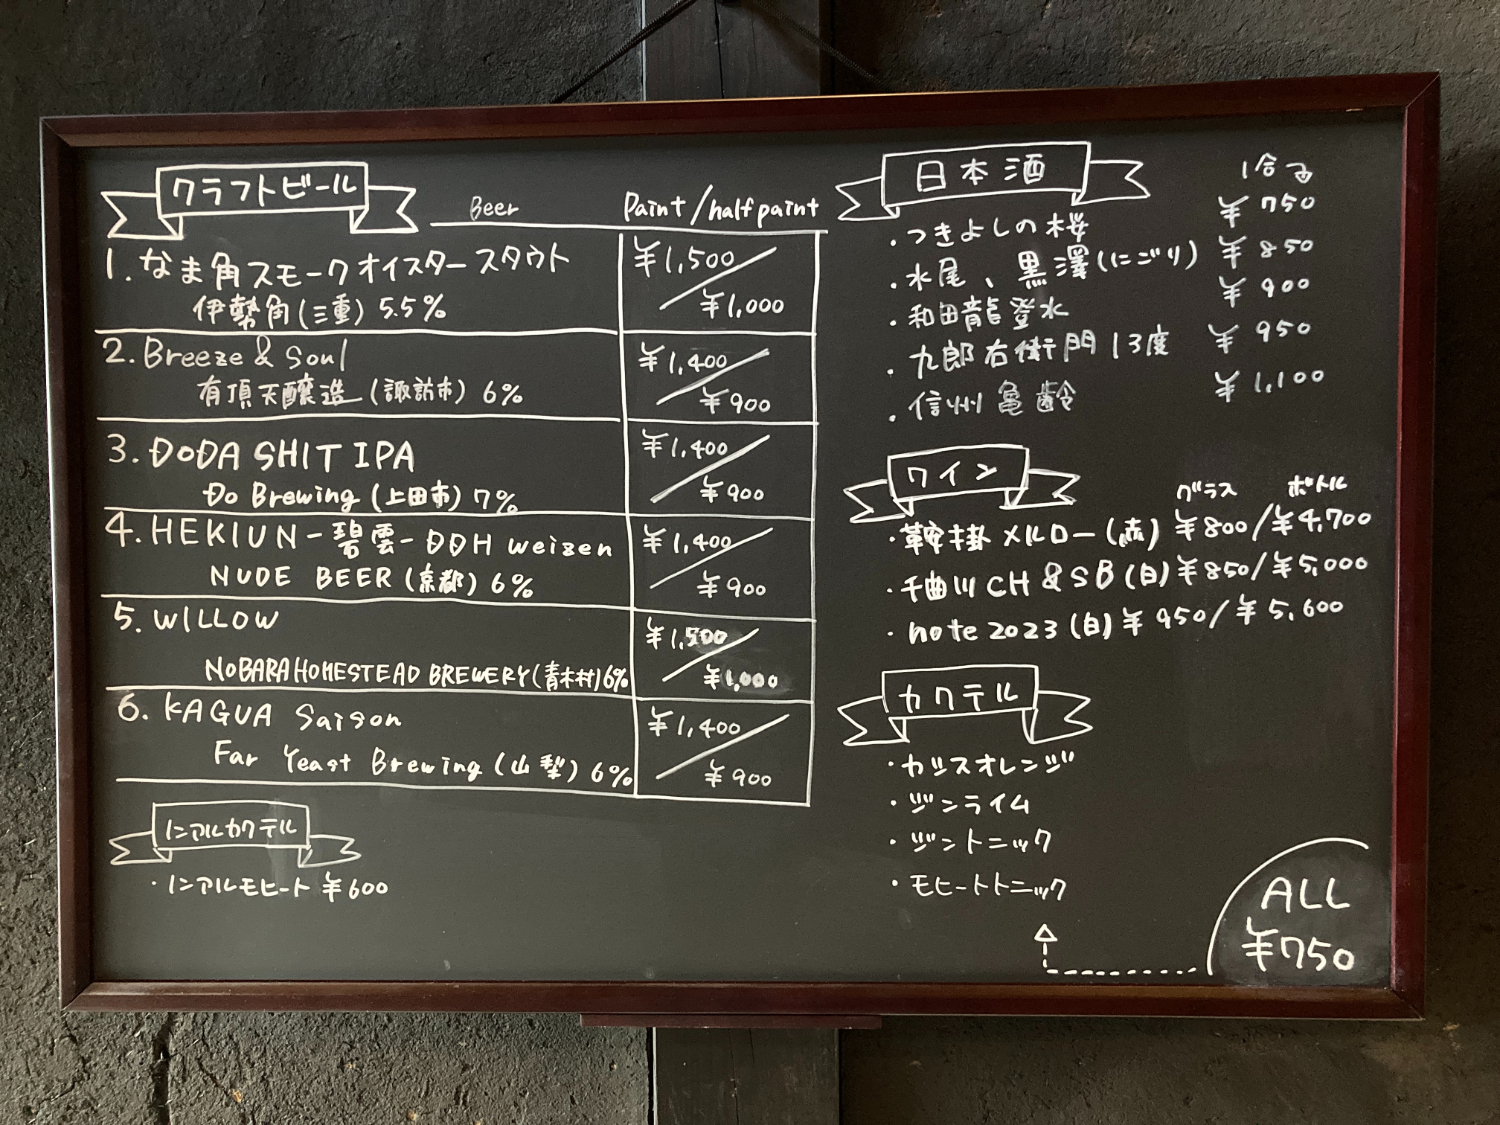 クラフトビール
Beer
Paint/half paint
1. なま角スモークオイスタースタウト
伊勢角(三重) 5.5%
¥1,500
¥1,000
2. Breeze & Soul
有頂天醸造(諏訪市) 6%
¥1,400
¥900
3. DODA SHIT IPA
Do Brewing (上田市) 7%
¥1,400
¥900
4. HEKIUN-碧雲-DDH weizen
NUDE BEER (京都) 6%
¥1,400
¥900
5. WILLOW
NOBARA HOMESTEAD BREWERY(青木村) 6%
¥1,500
¥1,000
6. KAGUA Saison
Far Yeast Brewing (山梨) 6%
¥1,400
¥900
ノンアルカクテル
・ノンアルモヒート ¥600
日本酒
1合
・つきよしの桜 ¥750
・水尾、黒澤(にごり) ¥850
・和田龍登水 ¥900
・九郎右衛門13度 ¥950
・信州亀齢 ¥1,100
ワイン
グラス ボトル
・鞍掛メルロー(赤) ¥800/¥4,700
・千曲川CH & SB(白) ¥850/¥5,000
・note 2023(白) ¥950/¥5,600
カクテル
・カシスオレンジ
・ジンライム
・ジントニック
・モヒートトニック
ALL
¥750